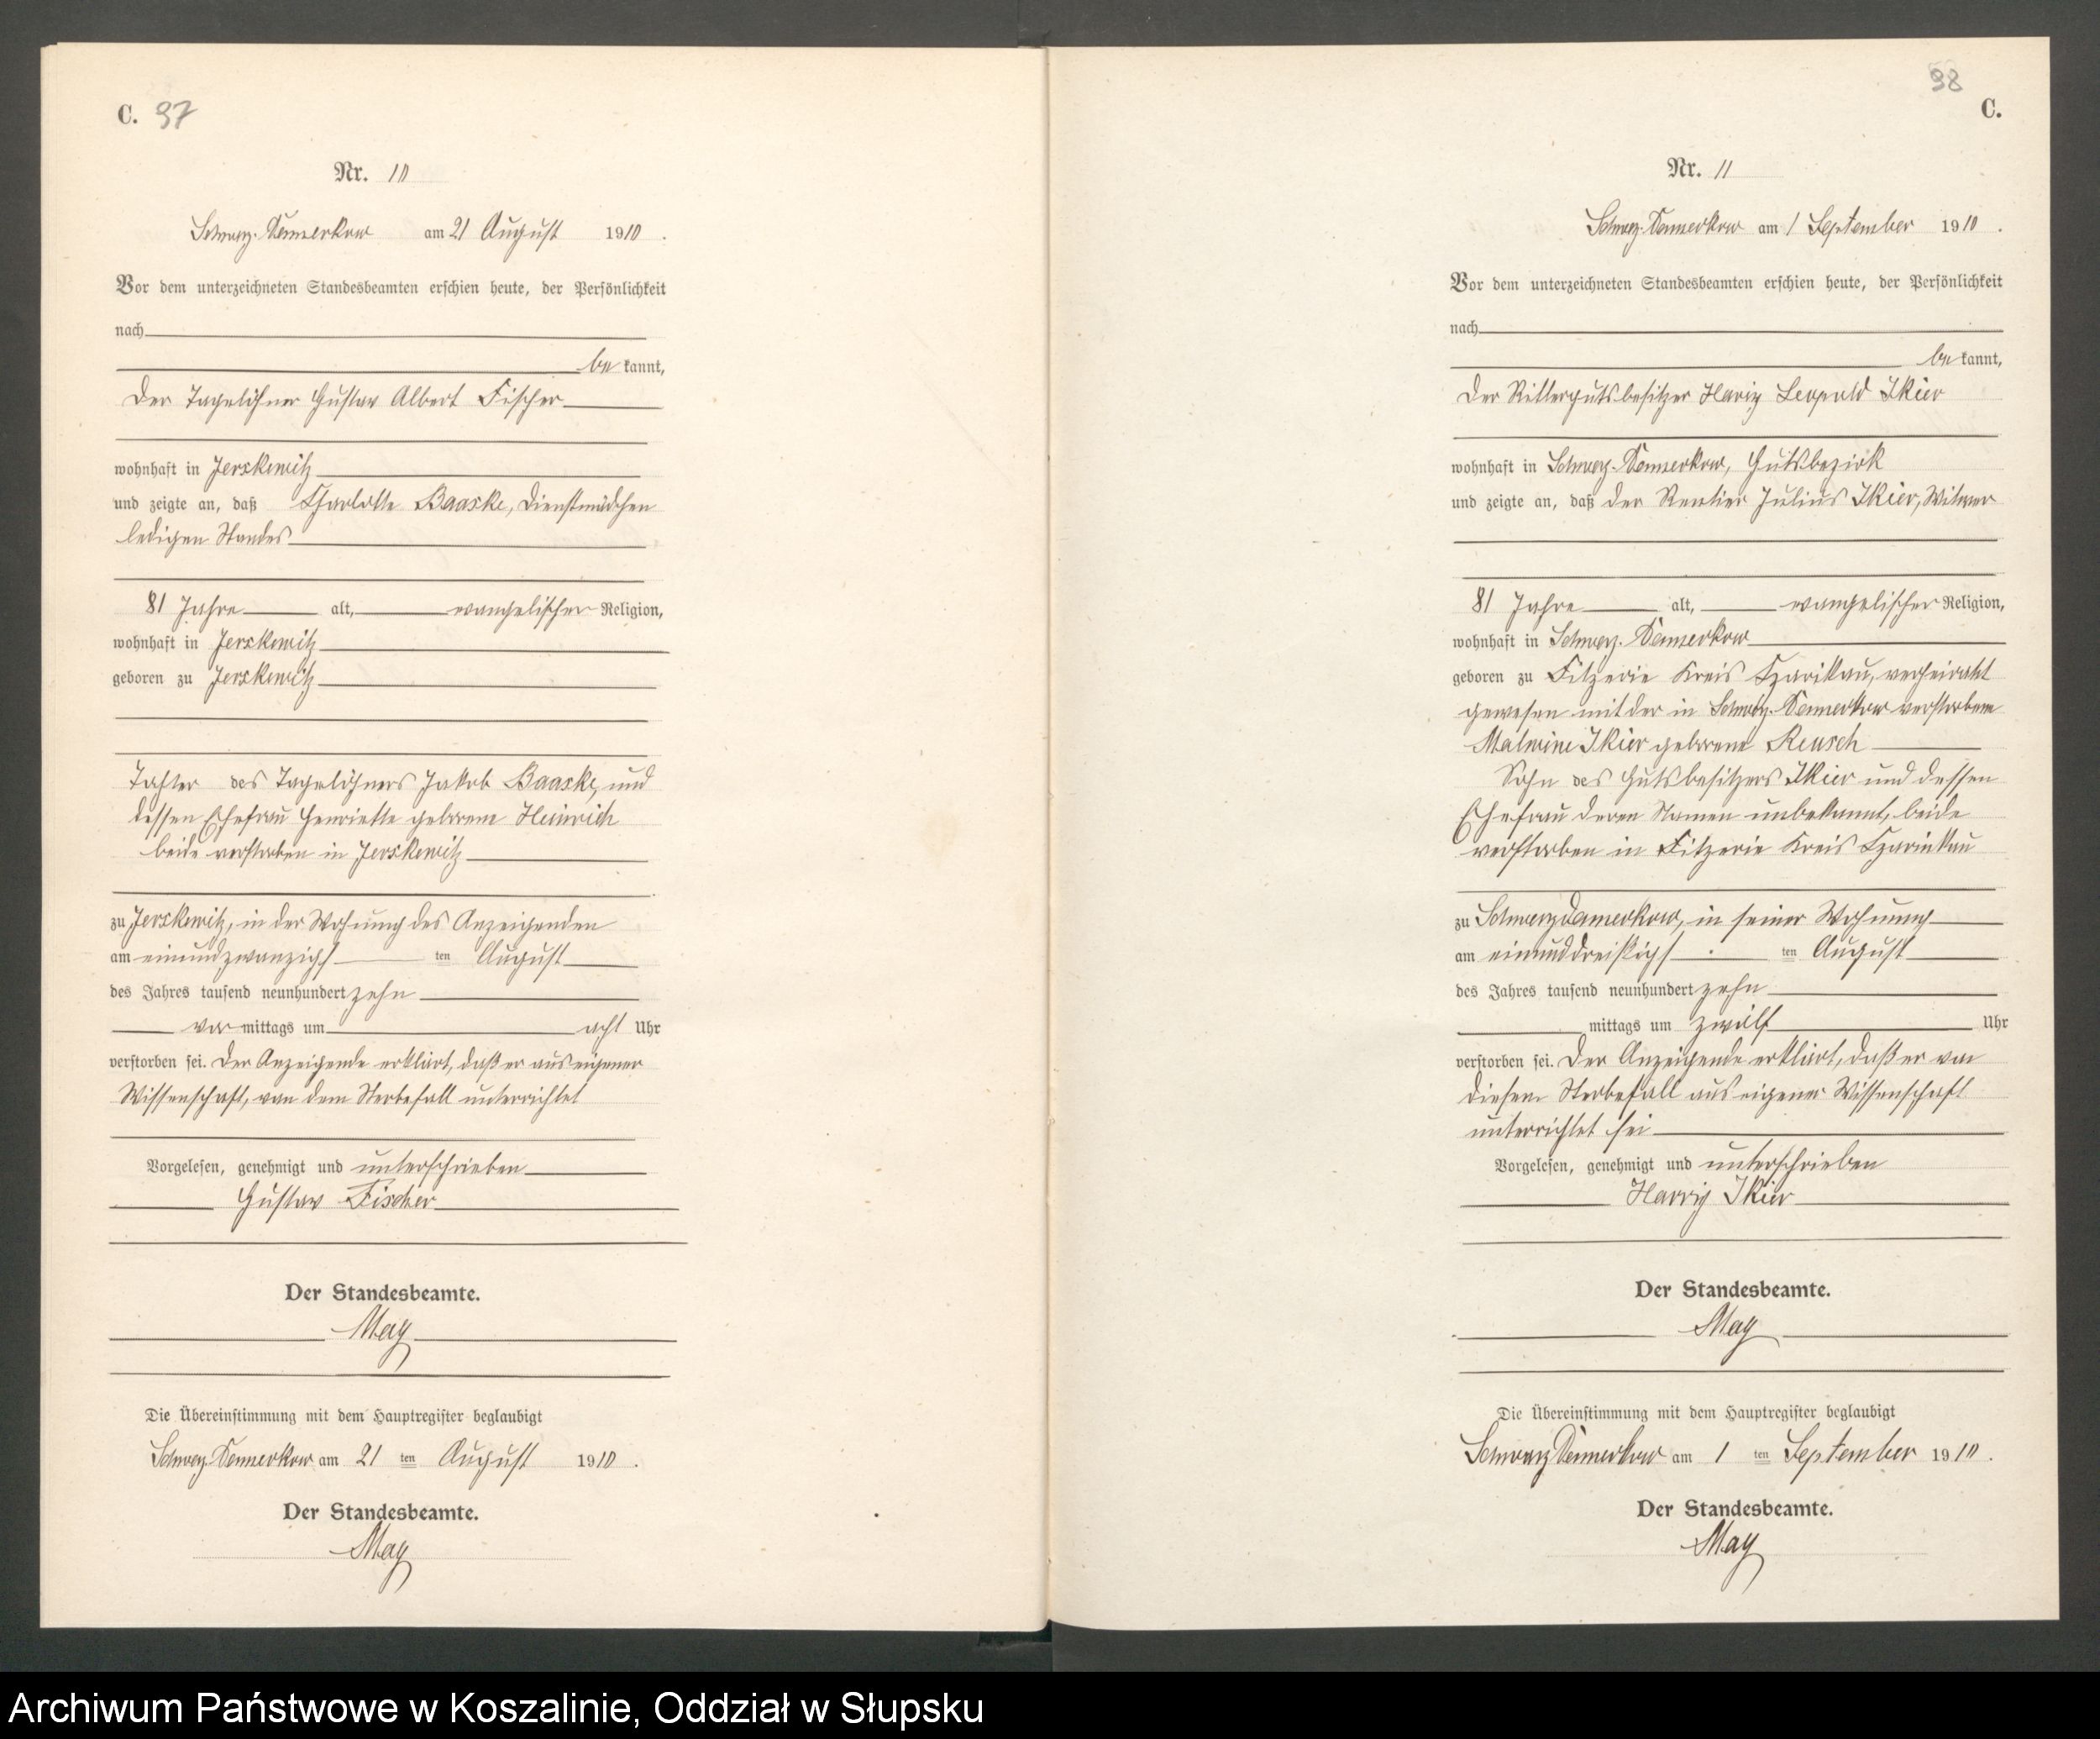 C. 37
Nr. 10
Schwarz-Damerkow am 21 August 1910.
Vor dem unterzeichneten Standesbeamten erschien heute, der Persönlichkeit
nach
be kannt,
der Tagelöhner Gustav Albert Fischer
wohnhaft in Jerskewitz
und zeigte an, daß Charlotte Baaske, Dienstmädchen
ledigen Standes
81 Jahre alt, evangelischer Religion,
wohnhaft in Jerskewitz
geboren zu Jerskewitz
Tochter des Tagelöhners Jakob Baaske, und
dessen Ehefrau Henriette geborene Heinrich
beide verstorben in Jerskewitz
zu Jerskewitz, in der Wohnung des Anzeigenden
am einundzwanzigs ten August
des Jahres tausend neunhundert zehn
vor mittags um acht Uhr
verstorben sei. Der Anzeigende erklärt, daß er aus eigener
Wissenschaft, von dem Sterbefall unterrichtet
Vorgelesen, genehmigt und unterschrieben
Gustav Fischer
Der Standesbeamte.
May
Die Übereinstimmung mit dem Hauptregister beglaubigt
Schwarz Damerkow am 21 ten August 1910.
Der Standesbeamte.
May
38
C.
Nr. 11
Schwarz-Damerkow am 1 September 1910.
Vor dem unterzeichneten Standesbeamten erschien heute, der Persönlichkeit
nach
be kannt,
der Rittergutsbesitzer Harry Leopold Ikier
wohnhaft in Schwarz-Damerkow, Gutsbezirk
und zeigte an, daß der Rentier Julius Ikier, Witwer
81 Jahre alt, evangelischer Religion,
wohnhaft in Schwarz-Damerkow
geboren zu Fitzerie Kreis Czarikau, verheiratet
gewesen mit der in Schwarz-Damerkow verstorbene
Malwine Ikier geborene Reusch
Sohn des Gutsbesitzers Ikier und dessen
Ehefrau deren Namen unbekannt, beide
verstorben in Fitzerie Kreis Czarinkau
zu Schwarzdamerkow, in seiner Wohnung
am einunddreißigs ten August
des Jahres tausend neunhundert zehn
mittags um zwölf Uhr
verstorben sei. Der Anzeigende erklärt, daß er von
diesem Sterbefall aus eigener Wissenschaft
unterrichtet sei
Vorgelesen, genehmigt und unterschrieben
Harry Ikier
Der Standesbeamte.
May
Die Übereinstimmung mit dem Hauptregister beglaubigt
Schwarz Damerkow am 1 ten September 1910.
Der Standesbeamte.
May
Archiwum Państwowe w Koszalinie, Oddział w Słupsku